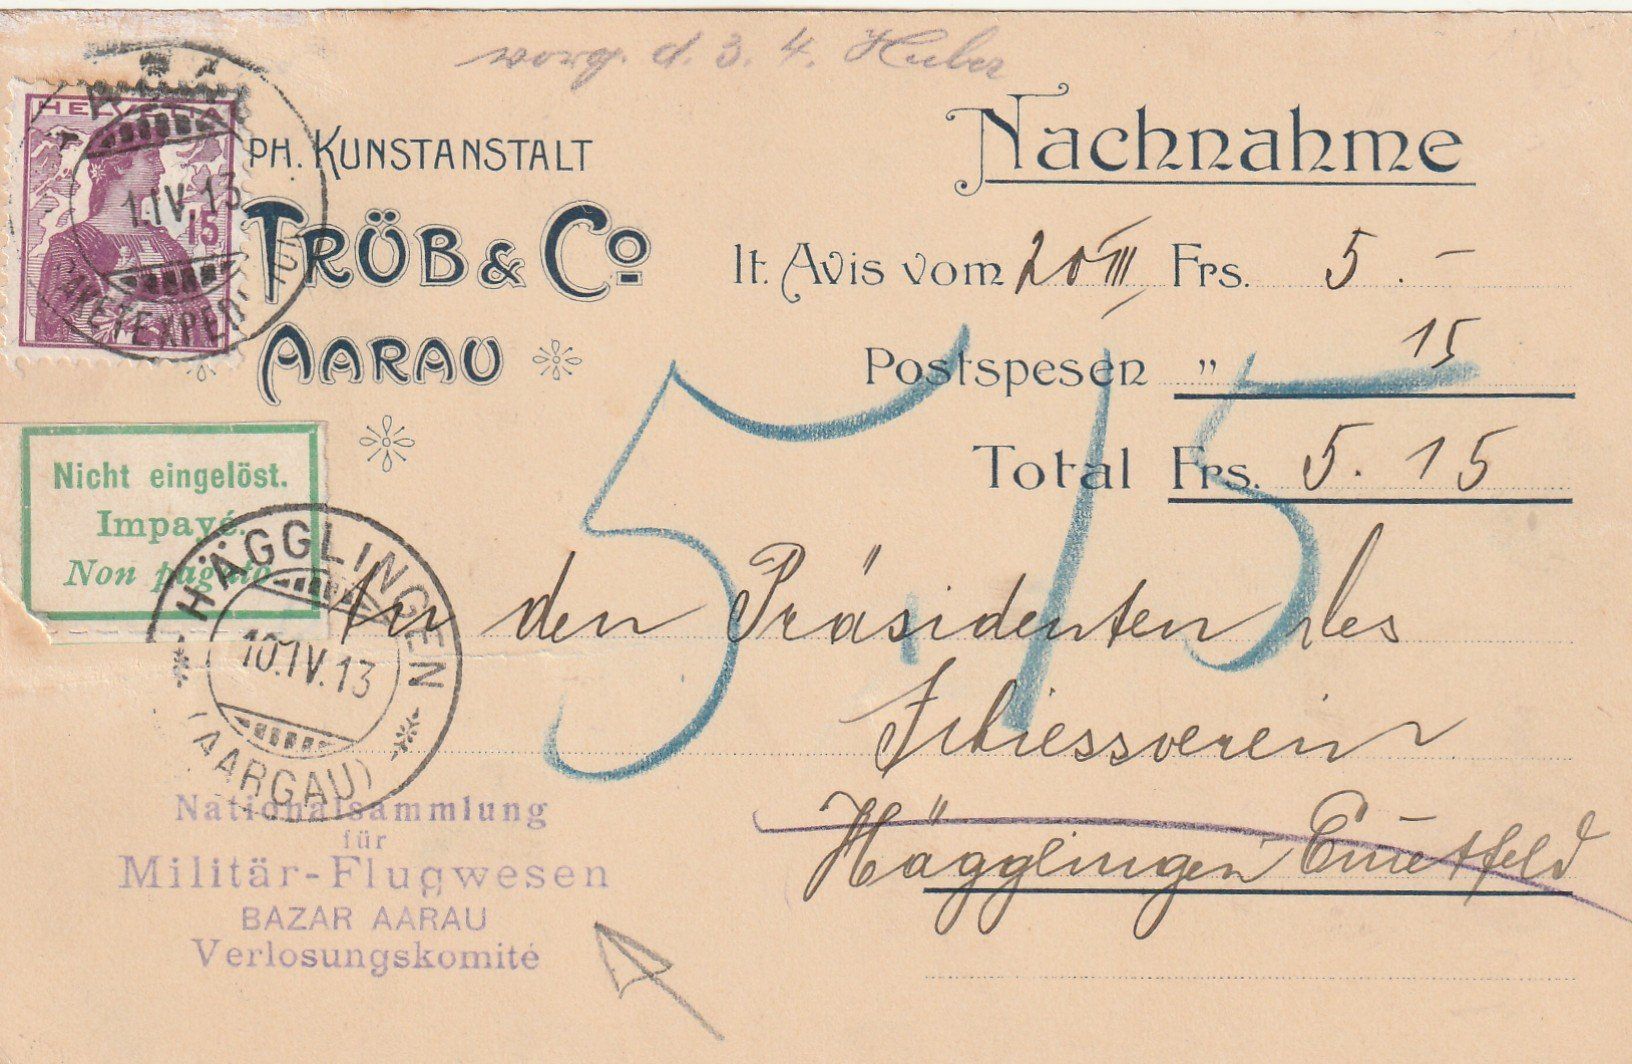 worg. d. 3. 4. Huber
HELVETIA
15
1.IV.13
PAKETEXPED
PH. KUNSTANSTALT
TRÜB & Co
AARAU
Nachnahme
lt. Avis vom 20 III, Frs. 5.-
Postspesen " 15
Total Frs. 5.15
5.15
Nicht eingelöst.
Impayé.
Non pagato
HÄGGLINGEN
10.IV.13
(AARGAU)
An den Präsidenten des
Schiessverein
Hägglingen
Nationalsammlung
für
Militär-Flugwesen
BAZAR AARAU
Verlosungskomité